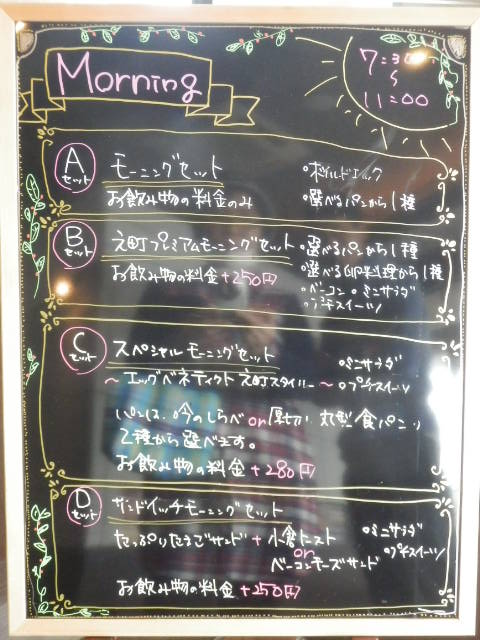 Morning
7:30
〜
11:00
A
セット
モーニングセット
お飲み物の料金のみ
。ボイルドエッグ
。選べるパンから1種
B
セット
元町プレミアムモーニングセット
お飲み物の料金+250円
。選べるパンから1種
。選べる卵料理から1種
。ベーコン 。ミニサラダ
。プチスイーツ
C
セット
スペシャルモーニングセット
〜エッグベネディクト元町スタイル〜
。ミニサラダ
。プチスイーツ
パンは、吟のしらべor厚切り丸型食パンの
2種から選べます。
お飲み物の料金+280円
D
セット
サンドイッチモーニングセット
たっぷりたまごサンド+小倉トースト
or
ベーコンチーズサンド
。ミニサラダ
。プチスイーツ
お飲み物の料金+250円